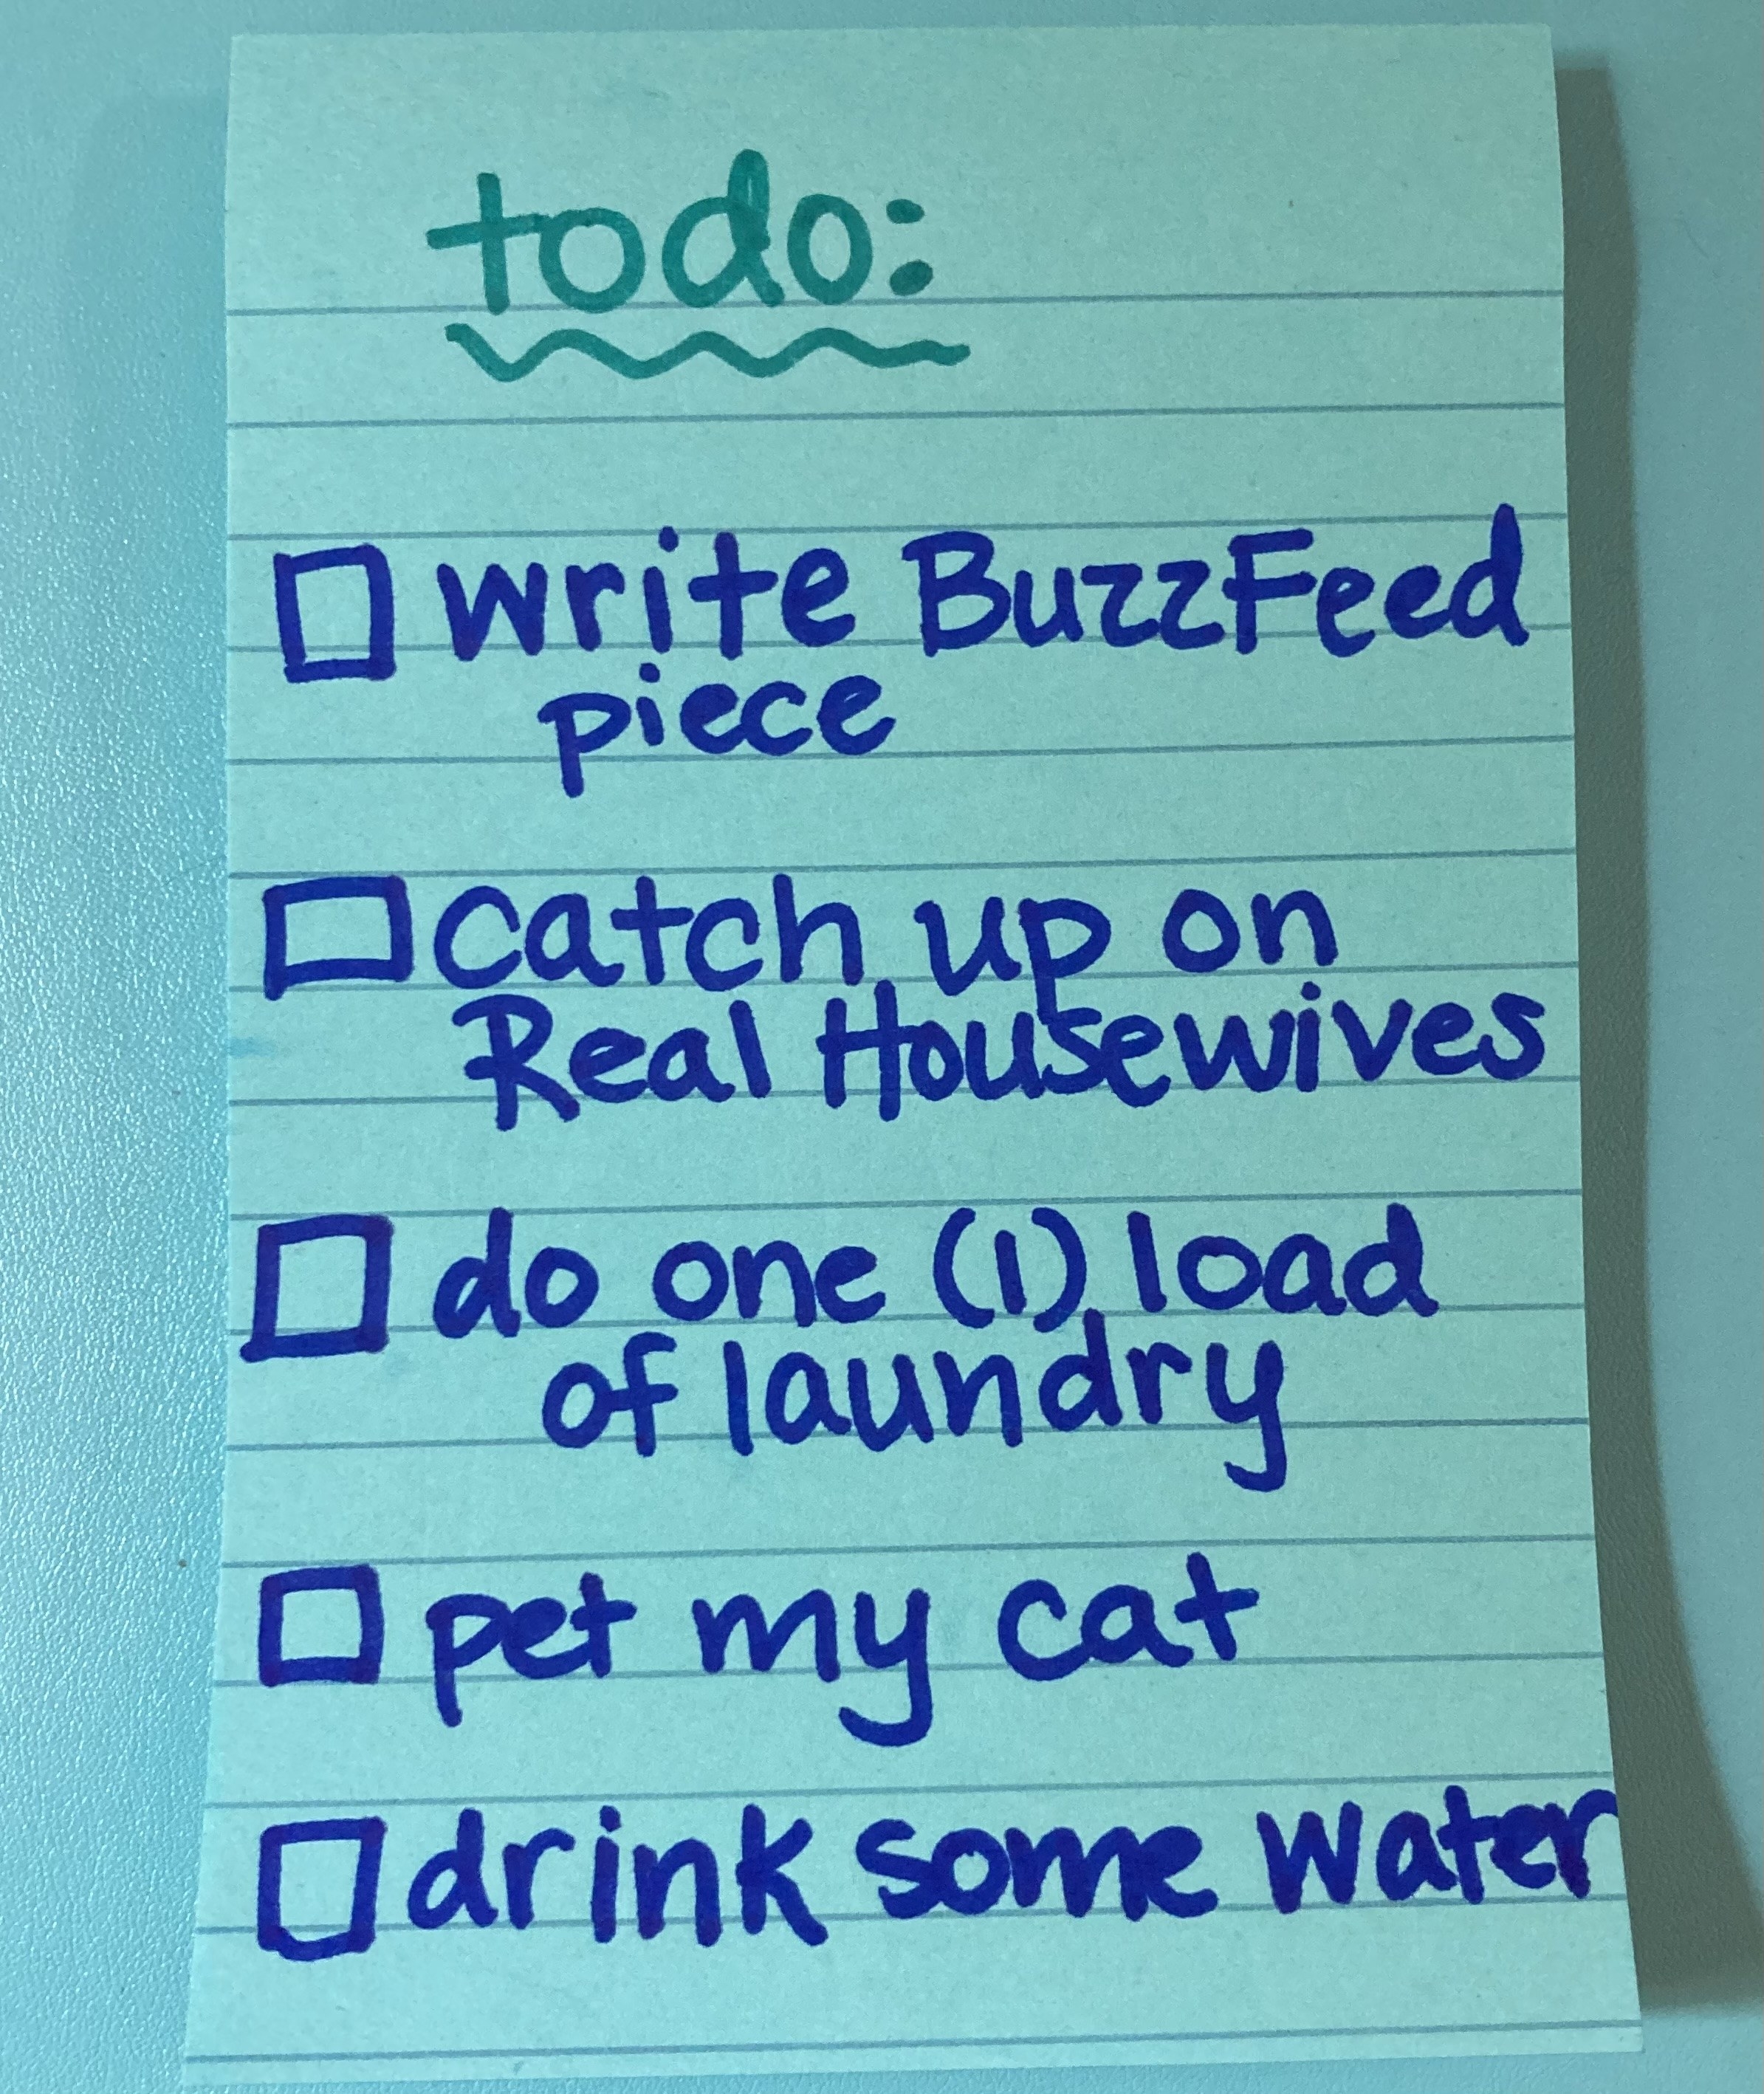 todo:
write BuzzFeed
piece
catch up on
Real Housewives
do one (1) load
of laundry
pet my cat
drink some water